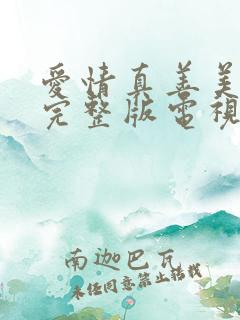 愛情真善美
完整版電視
南迦巴瓦
未经同意禁止转载